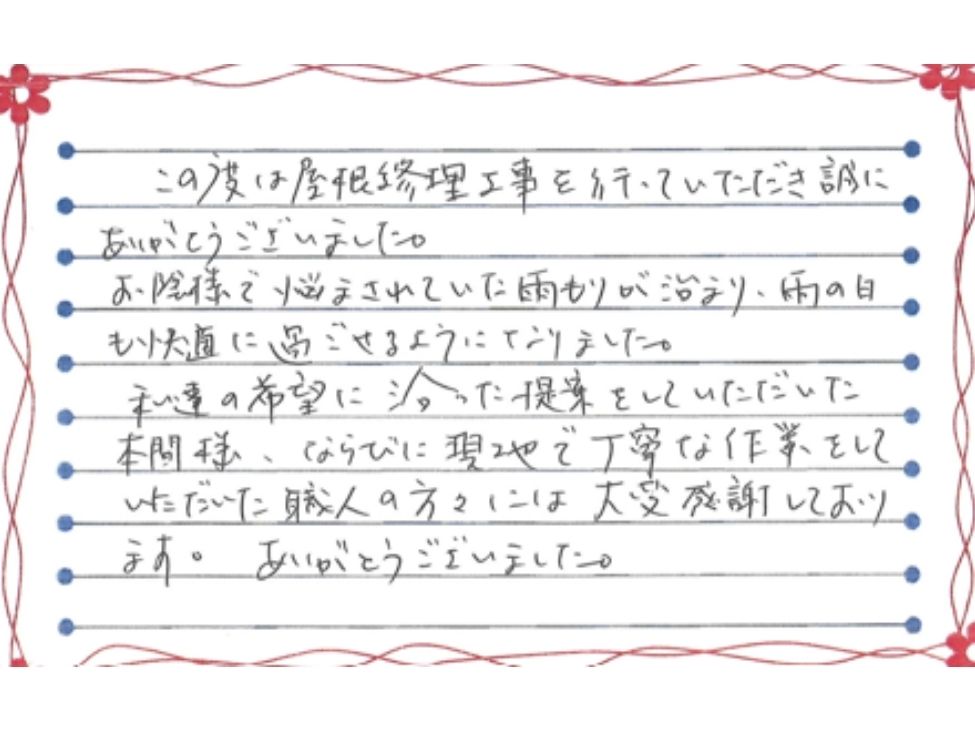 この度は屋根修理工事を行っていただき誠に
ありがとうございました。
お陰様で悩まされていた雨もりが治まり、雨の日
も快適に過ごせるようになりました。
私達の希望に沿った提案をしていただいた
本間様、ならびに現地で丁寧な作業をして
いただいた職人の方々には大変感謝しており
ます。 ありがとうございました。